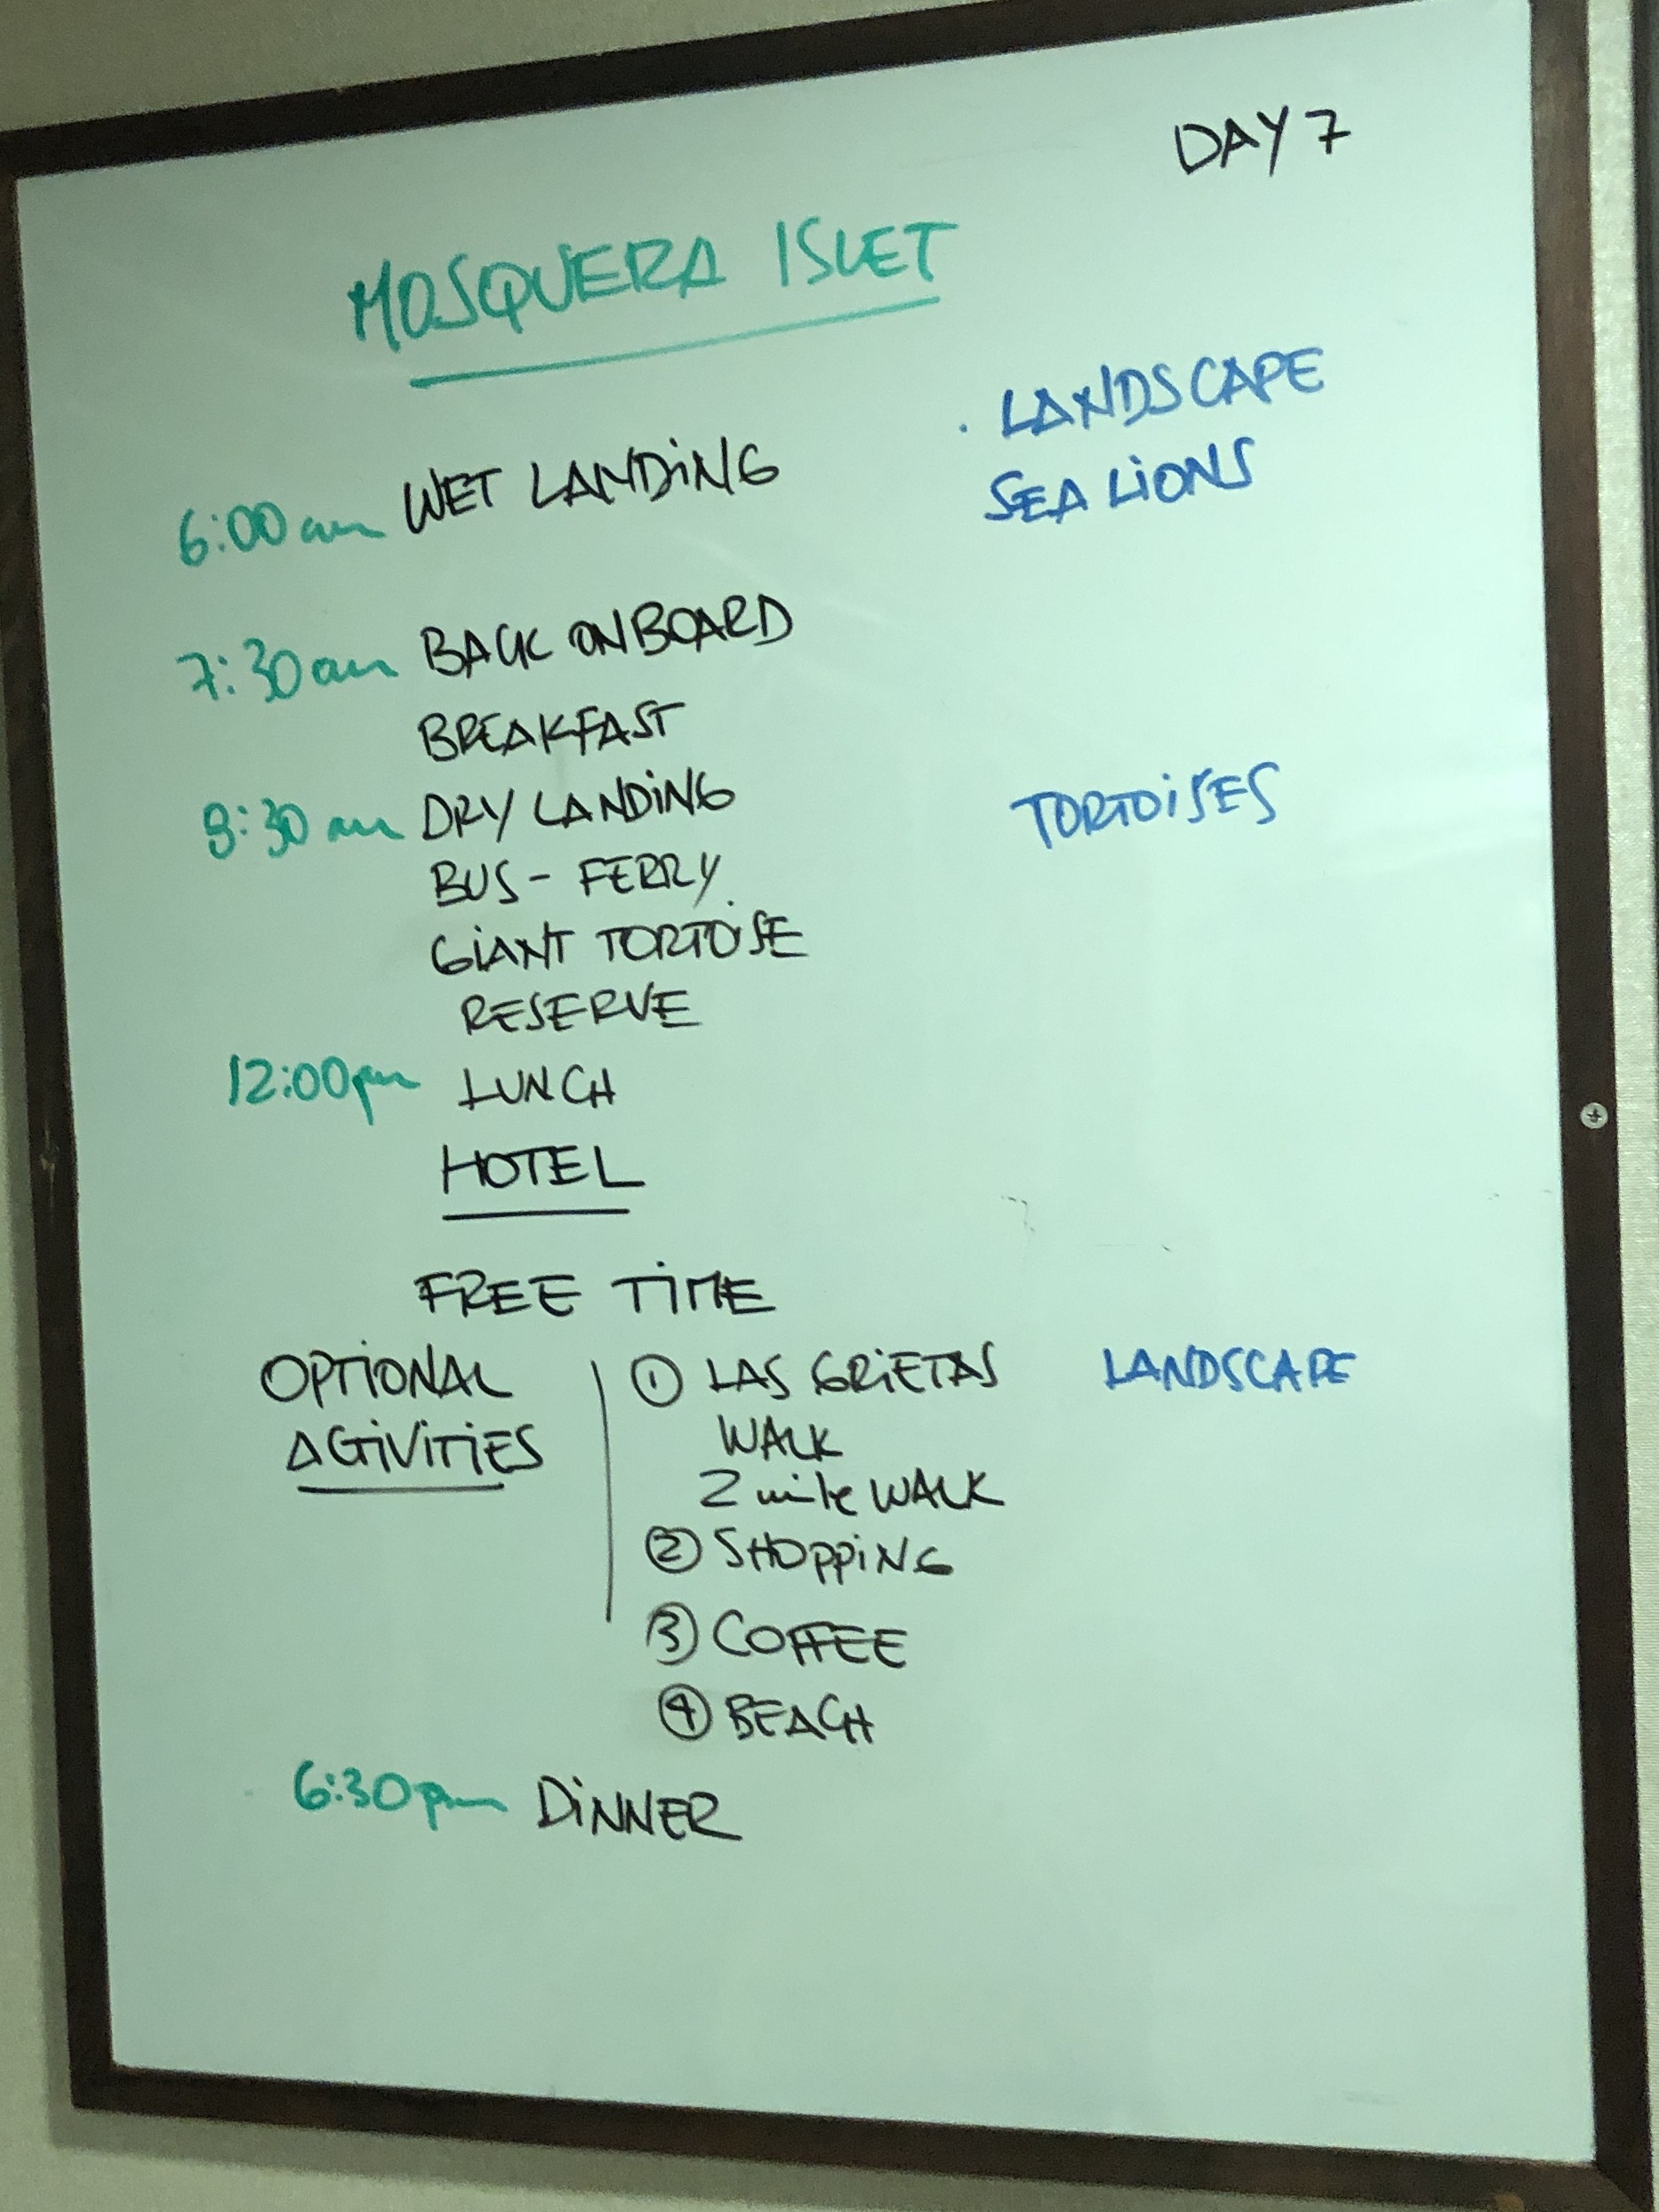 DAY 7
MOSQUERA ISLET
· LANDSCAPE
6:00 am WET LANDING SEA LIONS
7:30 am BACK ONBOARD
BREAKFAST
8:30 am DRY LANDING TORTOISES
BUS - FERRY
GIANT TORTOISE
RESERVE
12:00 pm LUNCH
HOTEL
FREE TIME
OPTIONAL ① LAS GRIETAS LANDSCAPE
ACTIVITIES WALK
2 mile WALK
② SHOPPING
③ COFFEE
④ BEACH
6:30 pm DINNER